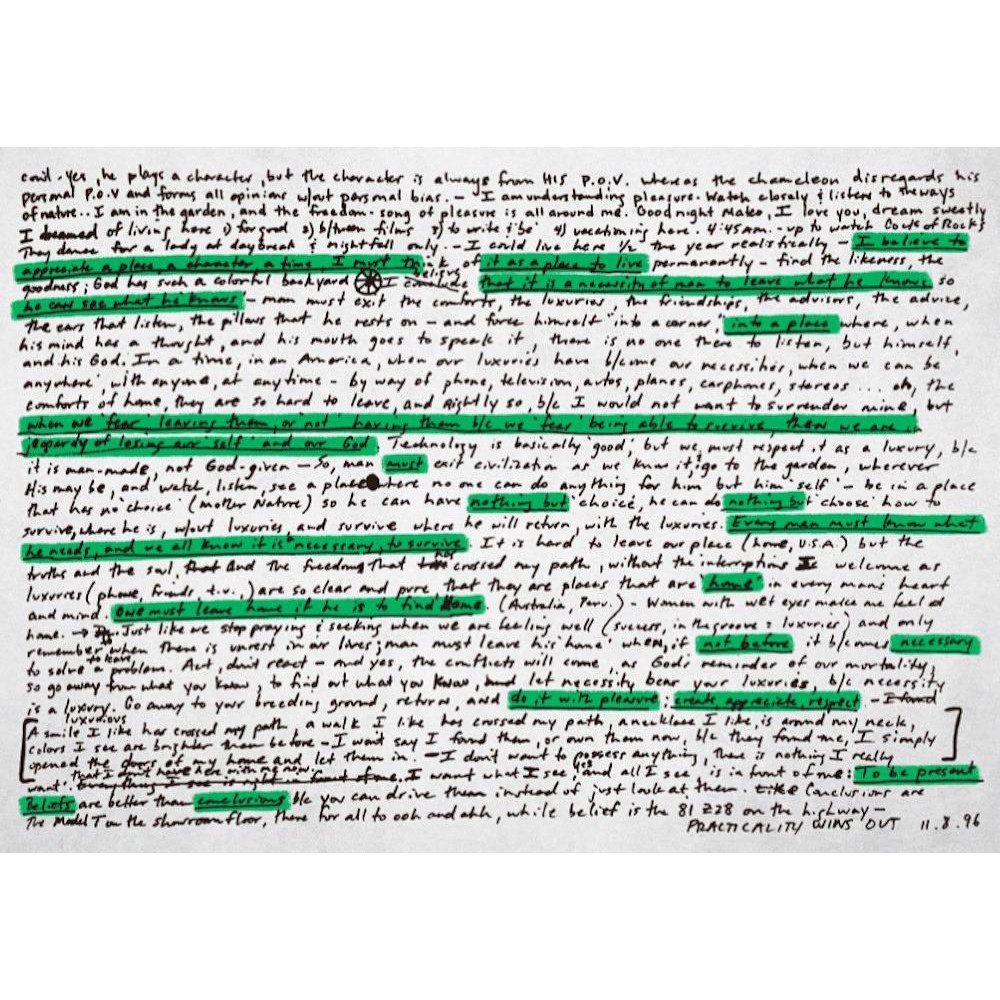 cont - yes, he plays a character, but the character is always from HIS P.O.V. whereas the chameleon disregards his
personal P.O.V and forms all opinions w/out personal bias. — I am understanding pleasure. Watch closely & listen to the ways
of nature.. I am in the garden, and the freedom-song of pleasure is all around me. Goodnight Mateo, I love you, dream sweetly
I dreamed of living here 1) for good 2) b/tween films 3) to write & 'be' 4) vacationing here. 4:45am. - up to watch Cock of Rocks
They dance for a lady at daybreak & nightfall only. - I could live here 1/2 the year realistically — I believe to
appreciate a place, a character a time, I must think of it as a place to live permanently - find the likeness, the
goodness; God has such a colorful backyard I conclude believe that it is a necessity of man to leave what he knows so
he can see what he knows - man must exit the comforts, the luxuries, the friendships, the advisors, the advice,
the ears that listen, the pillows that he rests on — and force himself 'into a corner', into a place where, when
his mind has a thought, and his mouth goes to speak it, there is no one there to listen, but himself,
and his God. In a time, in an America, when our luxuries have b/come our necessities, when we can be
anywhere, with anyone, at anytime - by way of phone, television, autos, planes, carphones, stereos ... oh, the
comforts of home, they are so hard to leave, and rightly so, b/c I would not want to surrender mine, but
when we 'fear' leaving them, or not having them b/c we 'fear' being able to survive, then we are in
jeopardy of losing our 'self' and our God. Technology is basically 'good', but we must respect it as a luxury, b/c
it is man-made, not God-given — So, man must exit civilization as we know it; go to the garden, wherever
His may be, and watch, listen, see a place where no one can do anything for him but him 'self' - be in a place
that has no choice (mother Nature) so he can have 'nothing but' choice, he can do 'nothing but' choose how to
survive, where he is, w/out luxuries, and survive where he will return, with the luxuries. Every man must know what
he needs, and we all know it is "necessary" to survive. It is hard to leave our place (home, U.S.A.) but the
truths and the soul, that and the freedom that has crossed my path, without the interruptions welcome as
luxuries (phone, friends, t.v.,) are so clear and pure, that they are places that are 'home' in every mans heart
and mind. One must leave home if he is to find Home. (Australia, Peru.) - Women with wet eyes make me feel at
home. → Just like we stop praying & seeking when we are feeling well (success, in the groove = luxuries) and only
remember to when there is unrest in our lives; man must leave his 'home' when, if not before it b/comes necessary
to solve a problem. to learn Act, don't react - and yes, the conflicts will come, as God's reminder of our mortality,
so go away from what you know, to find out what you know, and let necessity bear your luxuries, b/c necessity
is a luxury. Go away to your breeding ground, return, and do it with pleasure; create, appreciate, respect. - I found
A luxurious smile I like has crossed my path, a walk I like has crossed my path, a necklace I like, is around my neck,
colors I see are brighter than before - I wont say I found them, or own them now, b/c they found me, I simply
opened the doors of my home and let them in. - I don't want to possess anything, there is nothing I really
want that I don't have here with me now. everything I see is in front of me. I want what I see, yes and all I see, is in front of me: To be present
Beliefs are better than conclusions b/c you can drive them instead of just look at them. Like Conclusions are
The Model T on the showroom floor, there for all to ooh and ahh, while belief is the 81 Z28 on the highway —
PRACTICALITY WINS OUT 11.8.96